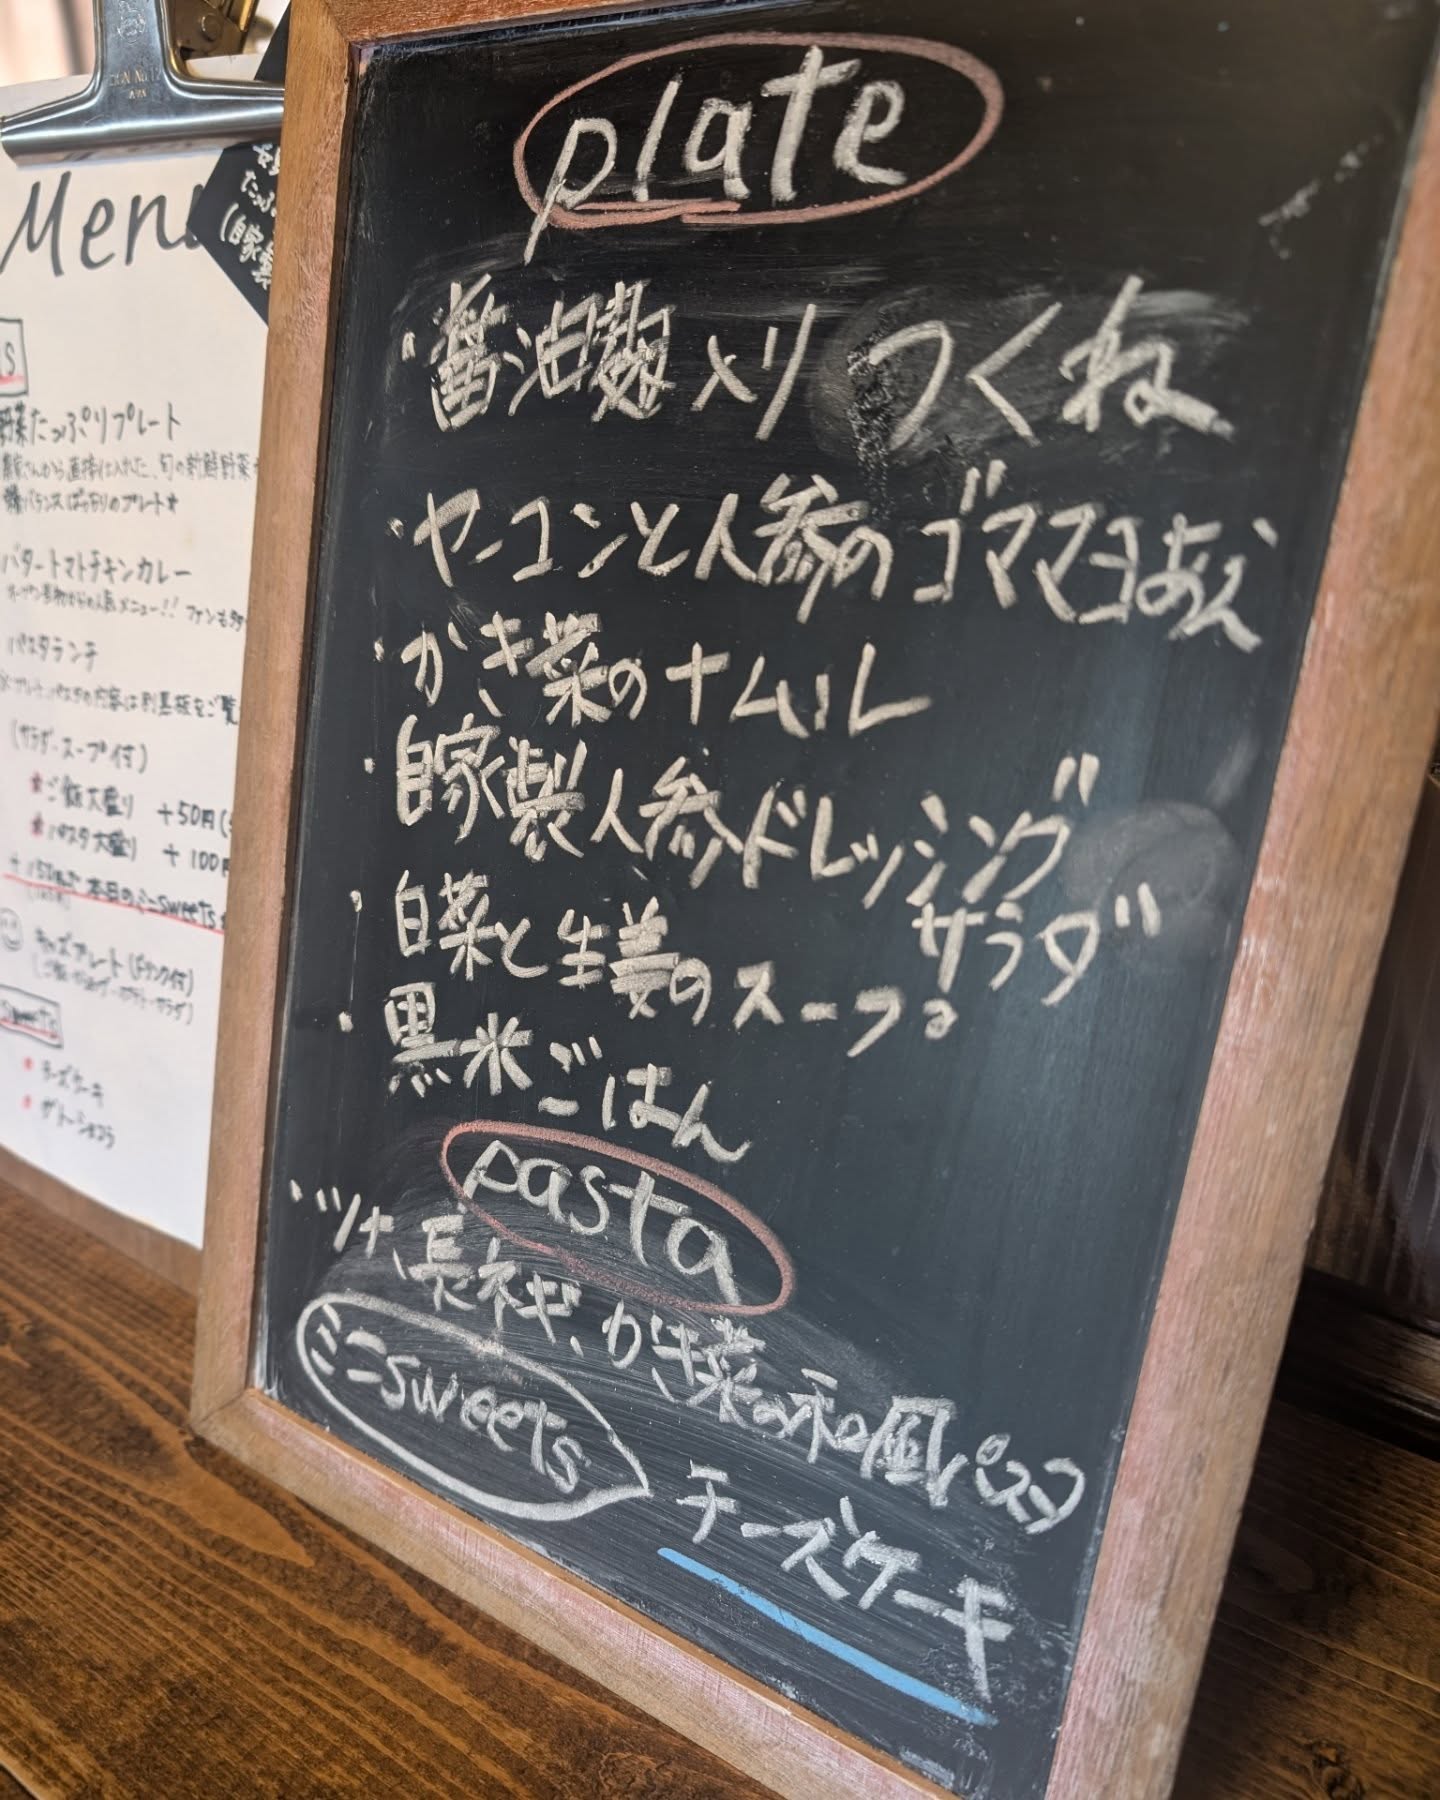 Menu
野菜たっぷりプレート
農家さんから直接仕入れた、旬の新鮮野菜
バランスばっちりのプレート★
バタートマトチキンカレー
オープン当初からの人気メニュー!! ファンも多
パスタランチ
※プレート、パスタの内容は別黒板をご覧
(サラダ・スープ付)
★ご飯大盛り +50円
★パスタ大盛り +100円
本日のミニsweets
キッズプレート(ドリンク付)
sweets
チーズケーキ
ガトーショコラ
たっぷ
(自家製
plate
・醤油麹入りつくね
・ヤーコンと人参のゴママヨあえ
・かき菜のナムル
・自家製人参ドレッシング
サラダ
・白菜と生姜のスープ
・黒米ごはん
pasta
・ツナ、長ネギ、かき菜の和風パスタ
ミニsweets
チーズケーキ